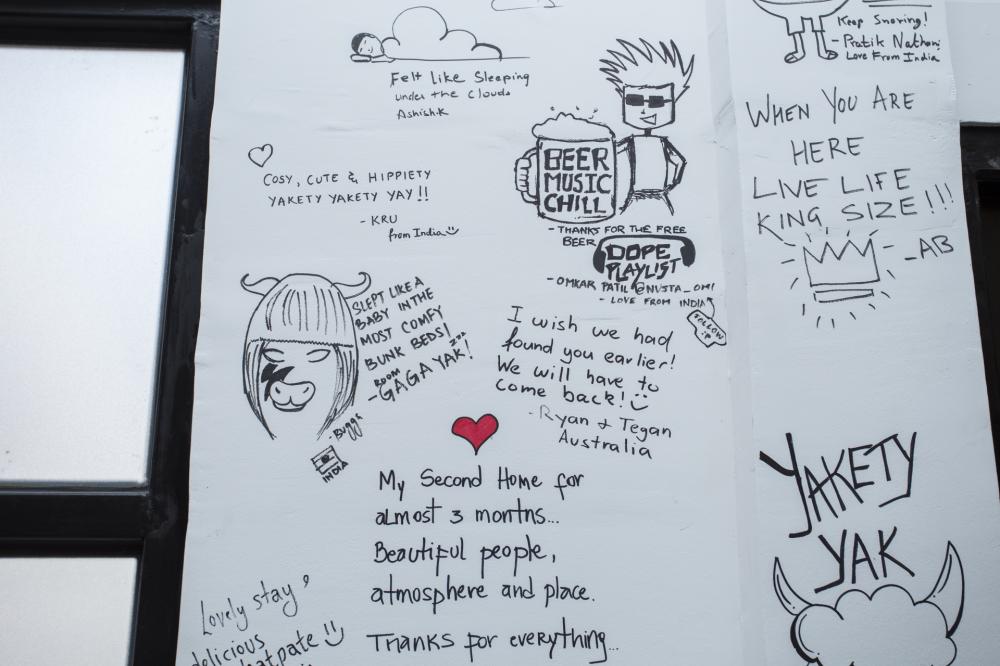 Felt like Sleeping
under the clouds
Ashish.K
Keep Snoring!
- Pratik Nathani
Love From India
WHEN YOU ARE
HERE
LIVE LIFE
KING SIZE!!!
- AB
COSY, CUTE & HIPPIETY
YAKETY YAKETY YAY!!
- KRU
from India
BEER
MUSIC
CHILL
- THANKS FOR THE FREE
BEER
DOPE
PLAYLIST
- OMKAR PATIL @NVSTA_OMI
- LOVE FROM INDIA
FOLLOW
:P
SLEPT LIKE A
BABY IN THE
MOST COMFY
BUNK BEDS! zzz
ROOM
- GAGA YAK!
- Buggh
INDIA
I wish we had
found you earlier!
We will have to
come back!
- Ryan & Tegan
Australia
My Second Home for
almost 3 montns...
Beautiful people,
atmosphere and place.
Thanks for everything...
Lovely stay,
delicious
YAKETY
YAK